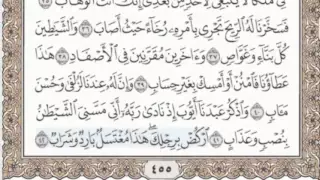 مُلْكًا لَّا يَنۢبَغِى لِأَحَدٍ مِّنۢ بَعْدِىٓ إِنَّكَ أَنتَ ٱلْوَهَّابُ ٣٥
فَسَخَّرْنَا لَهُ ٱلرِّيحَ تَجْرِى بِأَمْرِهِۦ رُخَآءً حَيْثُ أَصَابَ ٣٦ وَٱلشَّيَٰطِينَ
كُلَّ بَنَّآءٍ وَغَوَّاصٍ ٣٧ وَءَاخَرِينَ مُقَرَّنِينَ فِى ٱلْأَصْفَادِ ٣٨ هَٰذَا
عَطَآؤُنَا فَٱمْنُنْ أَوْ أَمْسِكْ بِغَيْرِ حِسَابٍ ٣٩ وَإِنَّ لَهُۥ عِندَنَا لَزُلْفَىٰ وَحُسْنَ
مَـَٔابٍ ٤٠ وَٱذْكُرْ عَبْدَنَآ أَيُّوبَ إِذْ نَادَىٰ رَبَّهُۥٓ أَنِّى مَسَّنِىَ ٱلشَّيْطَٰنُ
بِنُصْبٍ وَعَذَابٍ ٤١ ٱرْكُضْ بِرِجْلِكَ هَٰذَا مُغْتَسَلٌۢ بَارِدٌ وَشَرَابٌ ٤٢
٤٥٥